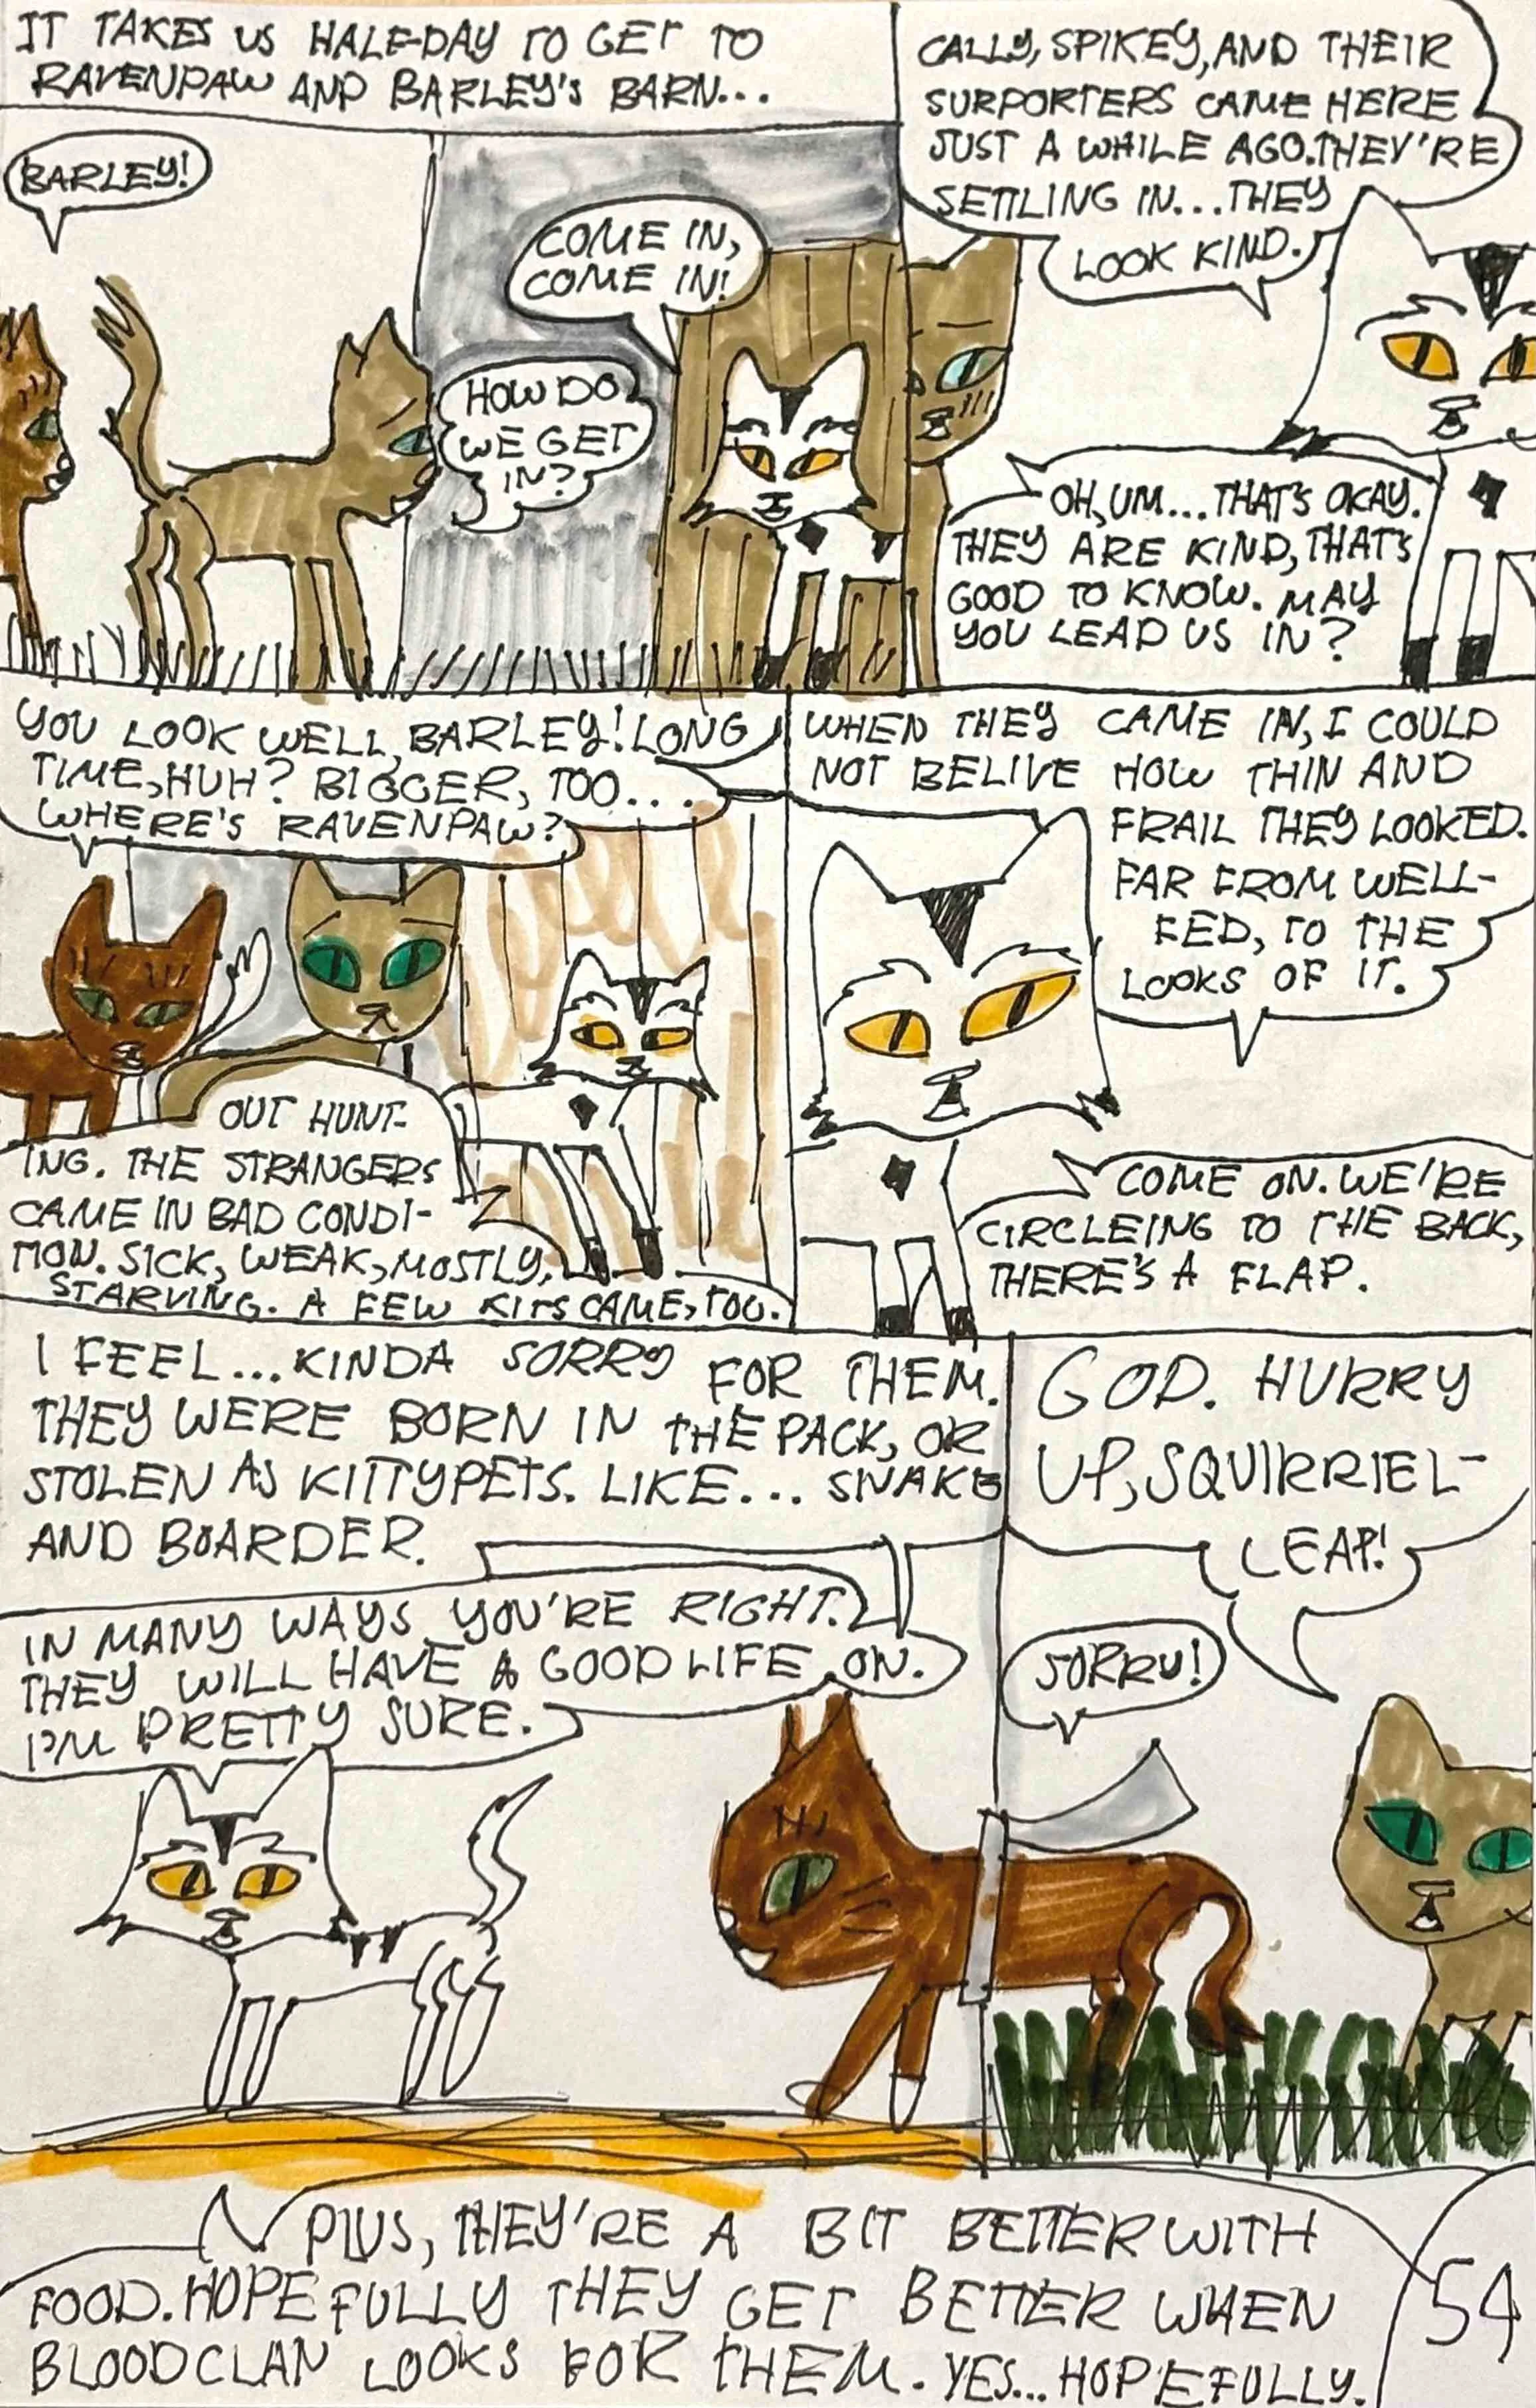 IT TAKES US HALF-DAY TO GET TO
RAVENPAW AND BARLEY'S BARN...
BARLEY!
COME IN,
COME IN!
HOW DO
WE GET
IN?
CALLY, SPIKEY, AND THEIR
SURPORTERS CAME HERE
JUST A WHILE AGO. THEY'RE
SETTLING IN... THEY
LOOK KIND.
OH, UM... THAT'S OKAY.
THEY ARE KIND, THAT'S
GOOD TO KNOW. MAY
YOU LEAD US IN?
YOU LOOK WELL, BARLEY! LONG
TIME, HUH? BIGGER, TOO...
WHERE'S RAVENPAW?
OUT HUNT-
ING. THE STRANGERS
CAME IN BAD CONDI-
TION. SICK, WEAK, MOSTLY,
STARVING. A FEW KITS CAME, TOO.
WHEN THEY CAME IN, I COULD
NOT BELIVE HOW THIN AND
FRAIL THEY LOOKED.
FAR FROM WELL-
FED, TO THE
LOOKS OF IT.
COME ON. WE'RE
CIRCLEING TO THE BACK,
THERE'S A FLAP.
I FEEL... KINDA SORRY FOR THEM.
THEY WERE BORN IN THE PACK, OR
STOLEN AS KITTYPETS. LIKE... SNAKE
AND BOARDER.
IN MANY WAYS YOU'RE RIGHT.
THEY WILL HAVE A GOOD LIFE ON.
I'M PRETTY SURE.
GOD. HURRY
UP, SQUIRRIEL-
LEAP!
SORRY!
PLUS, THEY'RE A BIT BETTER WITH
FOOD. HOPEFULLY THEY GET BETTER WHEN
BLOODCLAN LOOKS FOR THEM. YES... HOPEFULLY.
54